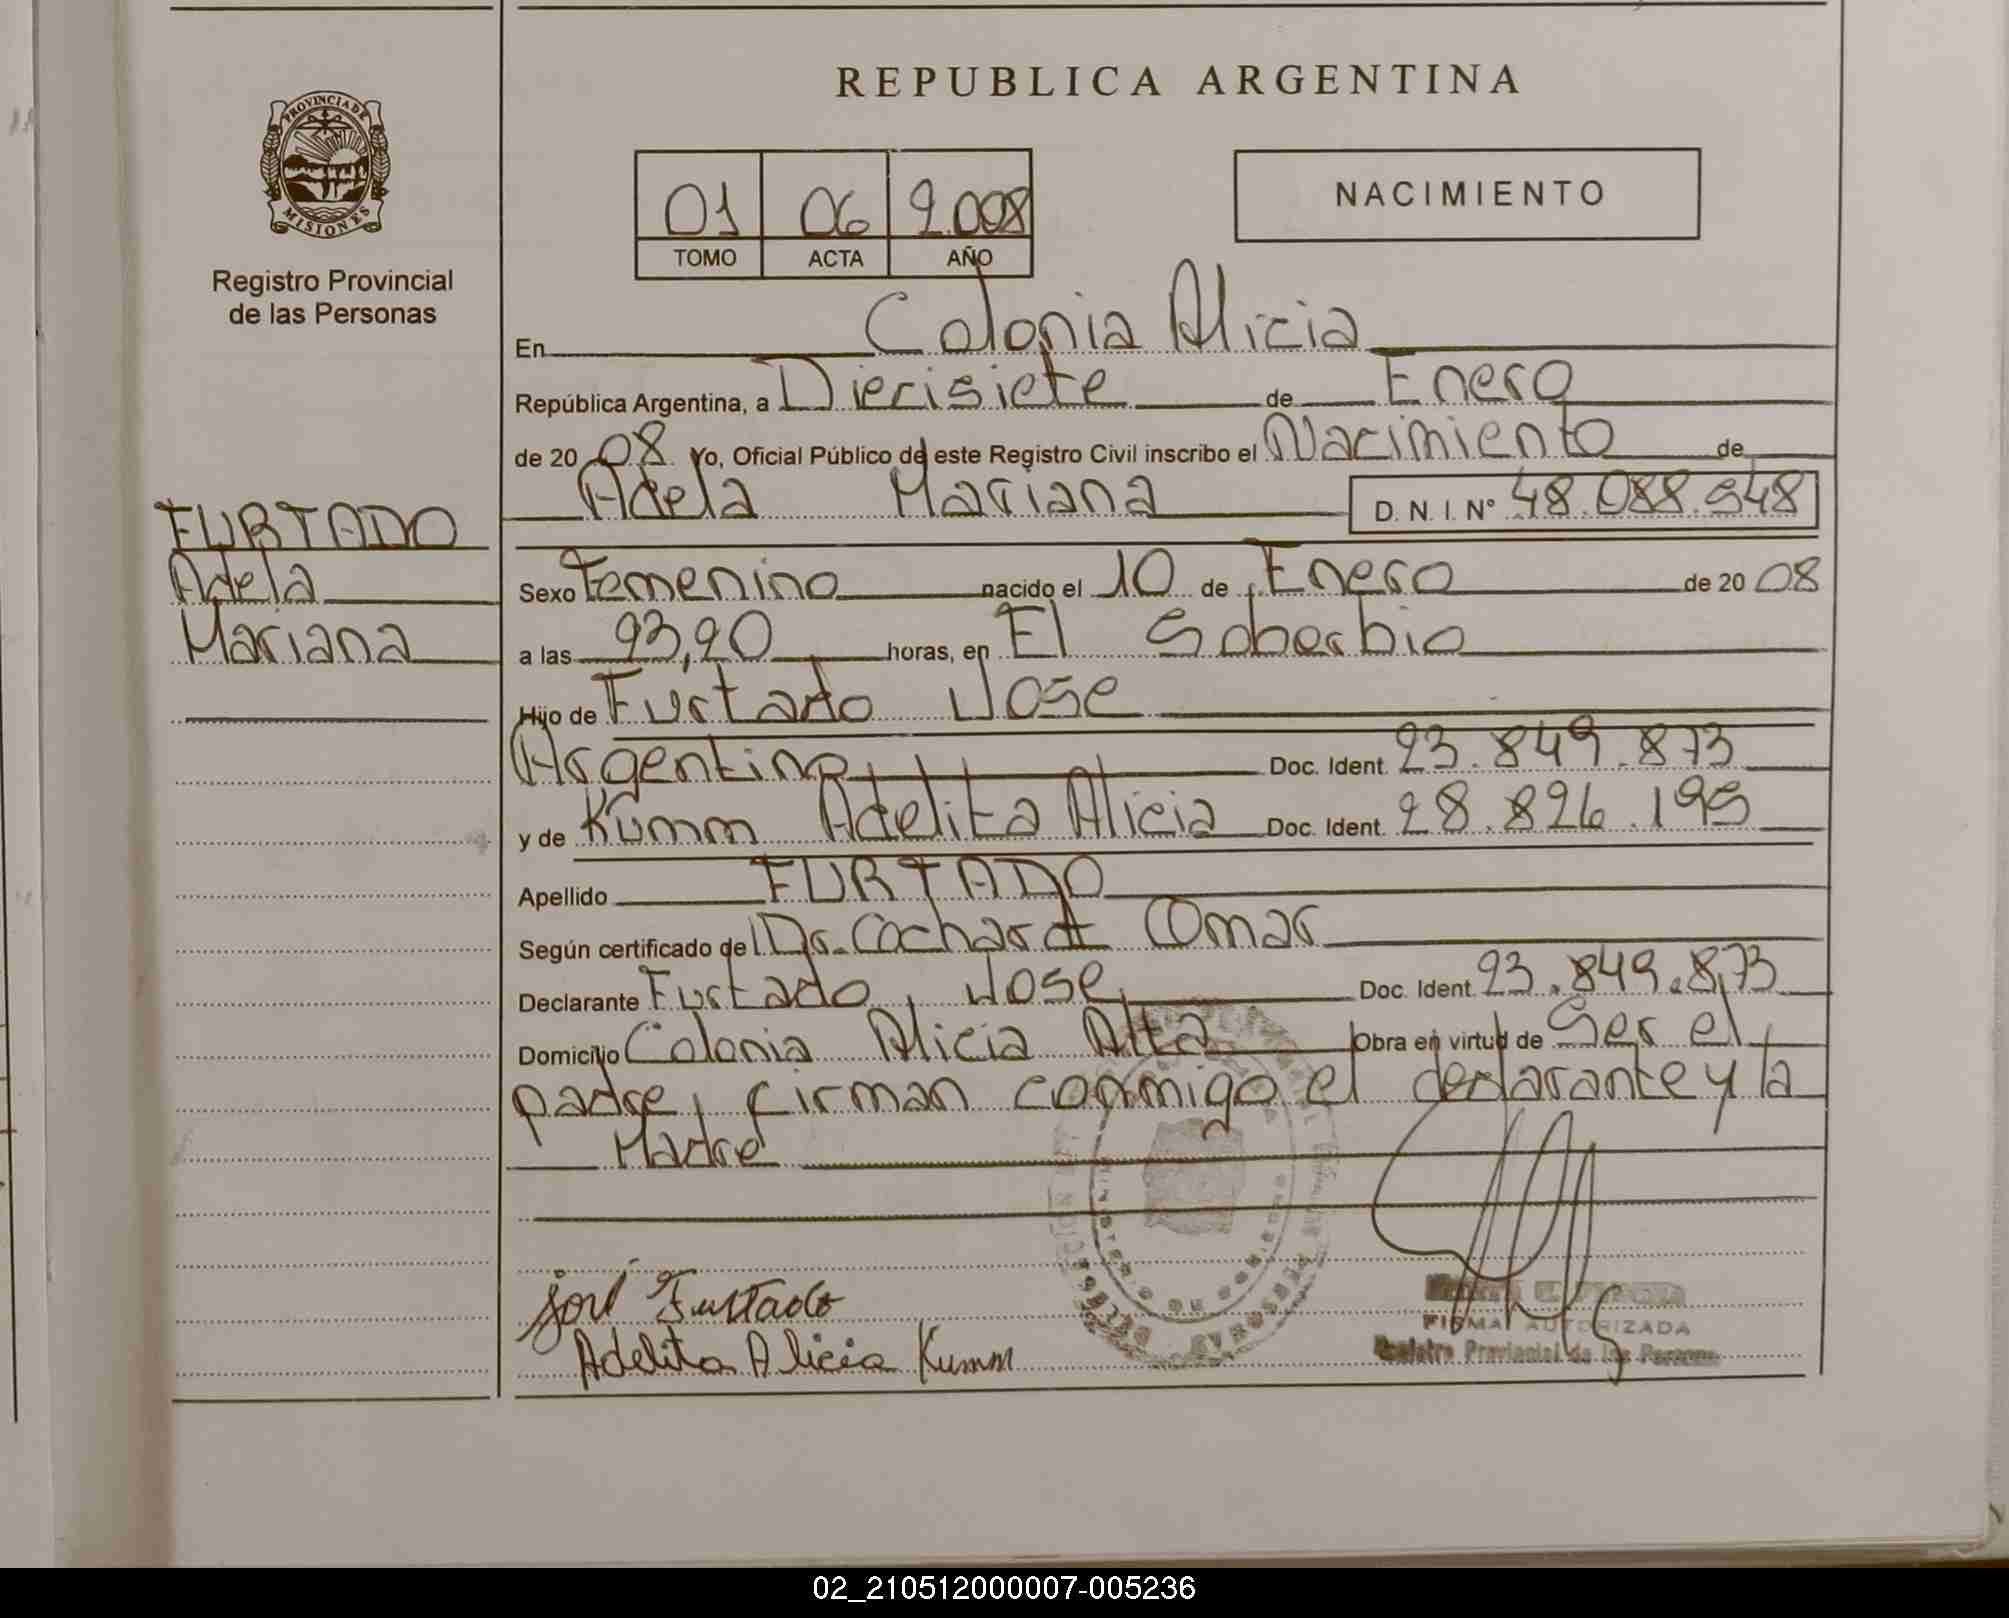 REPUBLICA ARGENTINA
PROVINCIA DE
MISIONES
Registro Provincial
de las Personas
01 06 2.008
TOMO ACTA AÑO
NACIMIENTO
En Colonia Alicia
República Argentina, a Diecisiete de Enero
de 20 08 Yo, Oficial Público de este Registro Civil inscribo el Nacimiento de
Adela Mariana D. N. I. Nº 48.088.948
FURTADO
Adela
Mariana
Sexo Femenino nacido el 10 de Enero de 20 08
a las 23,20 horas, en El Soberbio
Hijo de Furtado Jose
Argentino Doc. Ident. 23.849.873
y de Kumm Adelita Alicia Doc. Ident. 28.826.199
Apellido FURTADO
Según certificado de Dr. Cochardt Omar
Declarante Furtado, Jose Doc. Ident. 23.849.873
Domicilio Colonia Alicia Alta Obra en virtud de Ser el
padre, firman conmigo el declarante y la
Madre
José Furtado
Adelita Alicia Kumm
FIRMA AUTORIZADA
Registro Provincial de las Personas
02_210512000007-005236